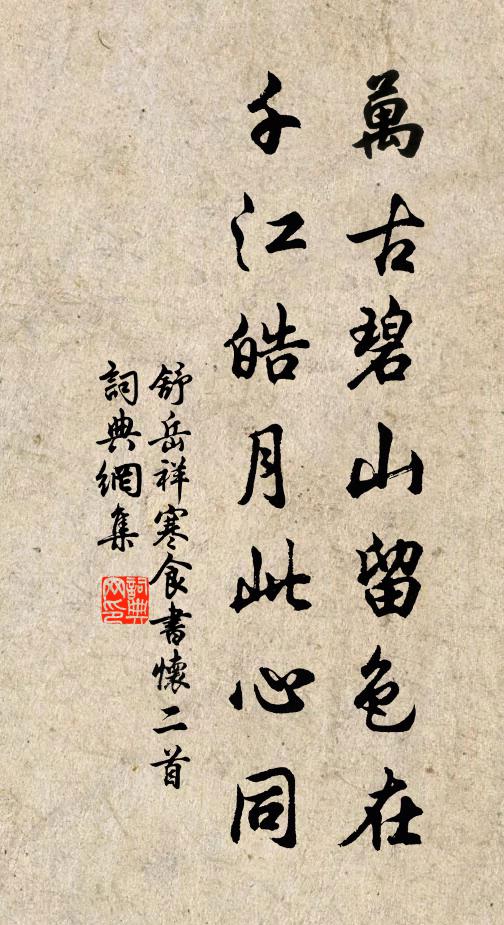 萬古碧山留色在
千江皓月此心同
舒岳祥寒食書懷二首
詞典網集
詞典
网印